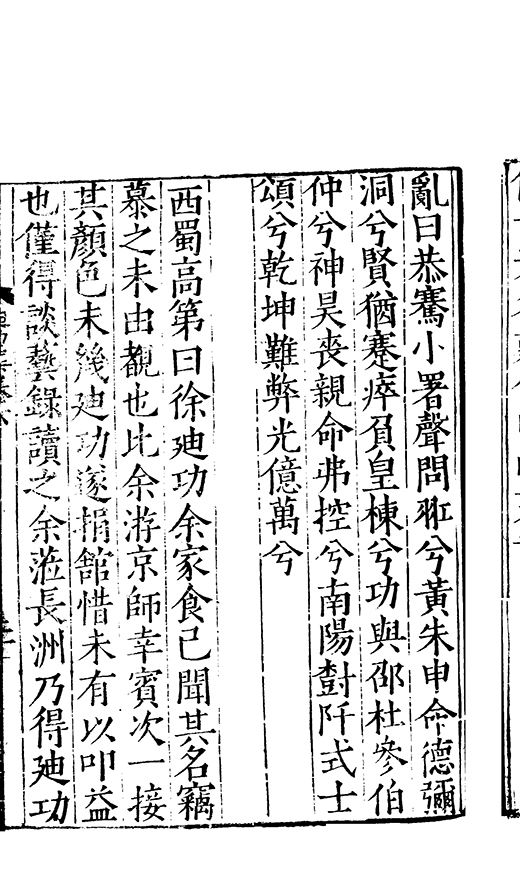 亂曰恭騫小署聲問羾兮黃朱申命德彌
洞兮賢猶蹇瘁負皇棟兮功與邵杜參伯
仲兮神昊喪親命弗控兮南陽樹阡式士
頌兮乾坤難弊光億萬兮
西蜀高第曰徐廸功余家食已聞其名竊
慕之未由覯也比余游京師幸賓次一接
其顏色未幾廸功遂捐館惜未有以叩益
也僅得談藝錄讀之余蒞長洲乃得廸功